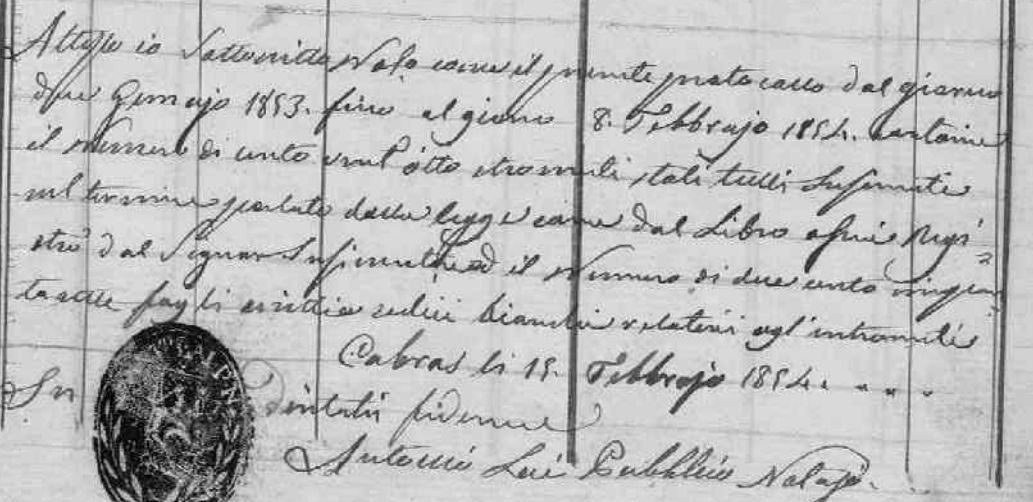 Attesto io Sottoscritto Not.o come il presente protocollo dal giorno
due Gennajo 1853. fino al giorno 8. Febbrajo 1854. contiene
il Numero di cento vent'otto stromenti, stati tutti Insinuati
nel termine portato dalla legge come dal Libro ossia Regi=
stro dal Signor Insinuatore ed il Numero di due cento
fogli bianchi relativi agl'intromenti
Cabras li 15. Febbrajo 1854.
In fede
Antonio Luis Pubblico Notajo.